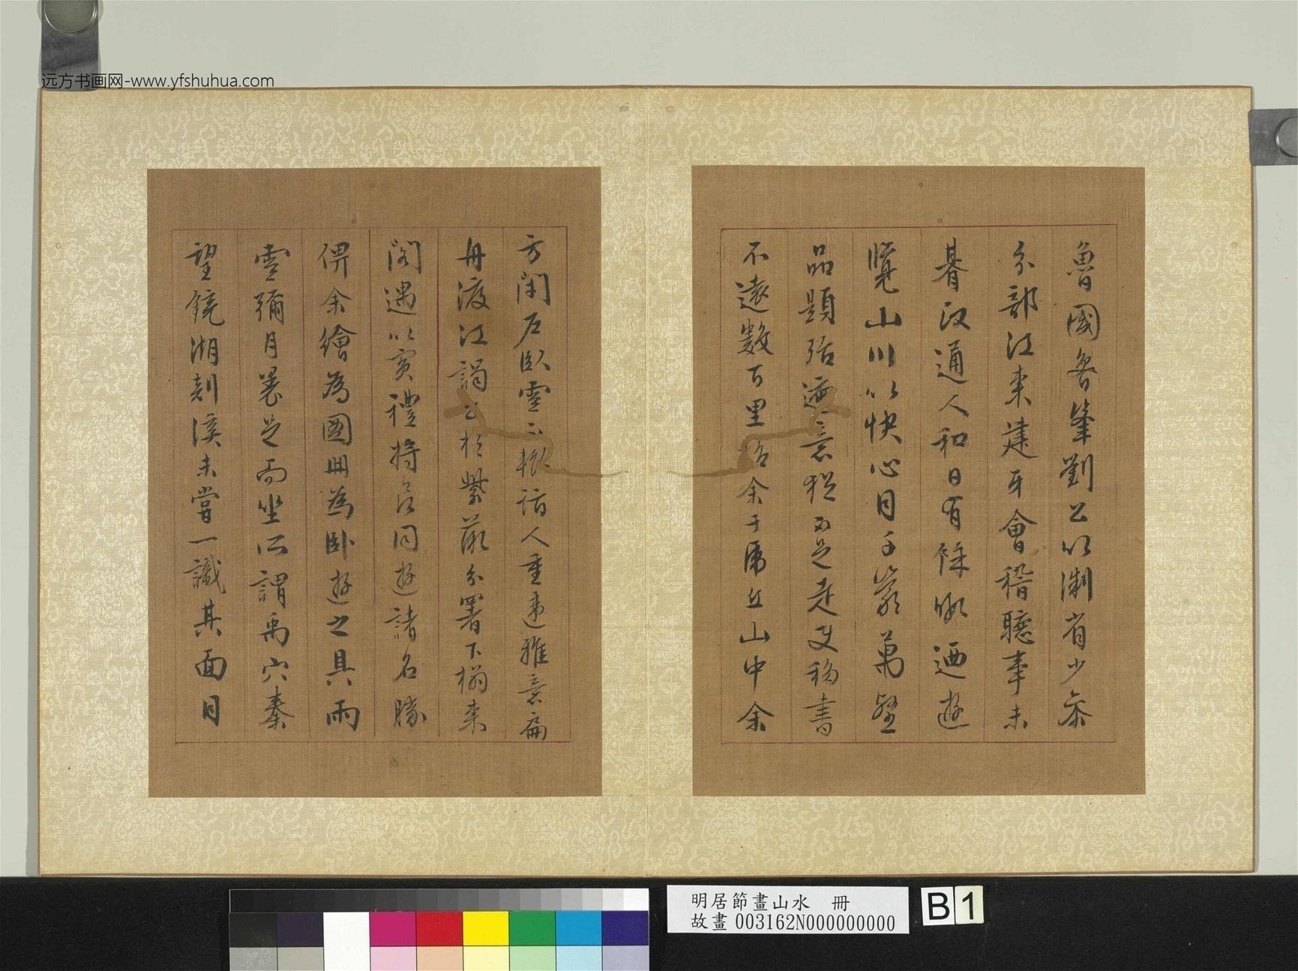 远方书画网-www.yfshuhua.com
魯國魯峯劉公以淛省少叅
分部江東建牙會稽聽事未
朞政通人和日有餘暇迺遊
覽山川以快心目千巖萬壑
品題殆遍意猶不足走叟移書
不遠數百里招余于虎丘山中余
方閑石臥雲不輟話人重違雅意扁
舟渡江謁公於紫薇分署下榻東
閣遇以賓禮將令同遊諸名勝
俾余繪為圖冊為臥遊之具雨
雪彌月裹足而坐所謂禹穴秦
望鏡湖剡溪未嘗一識其面目
明居節畫山水 冊
故畫 003162N000000000
B 1